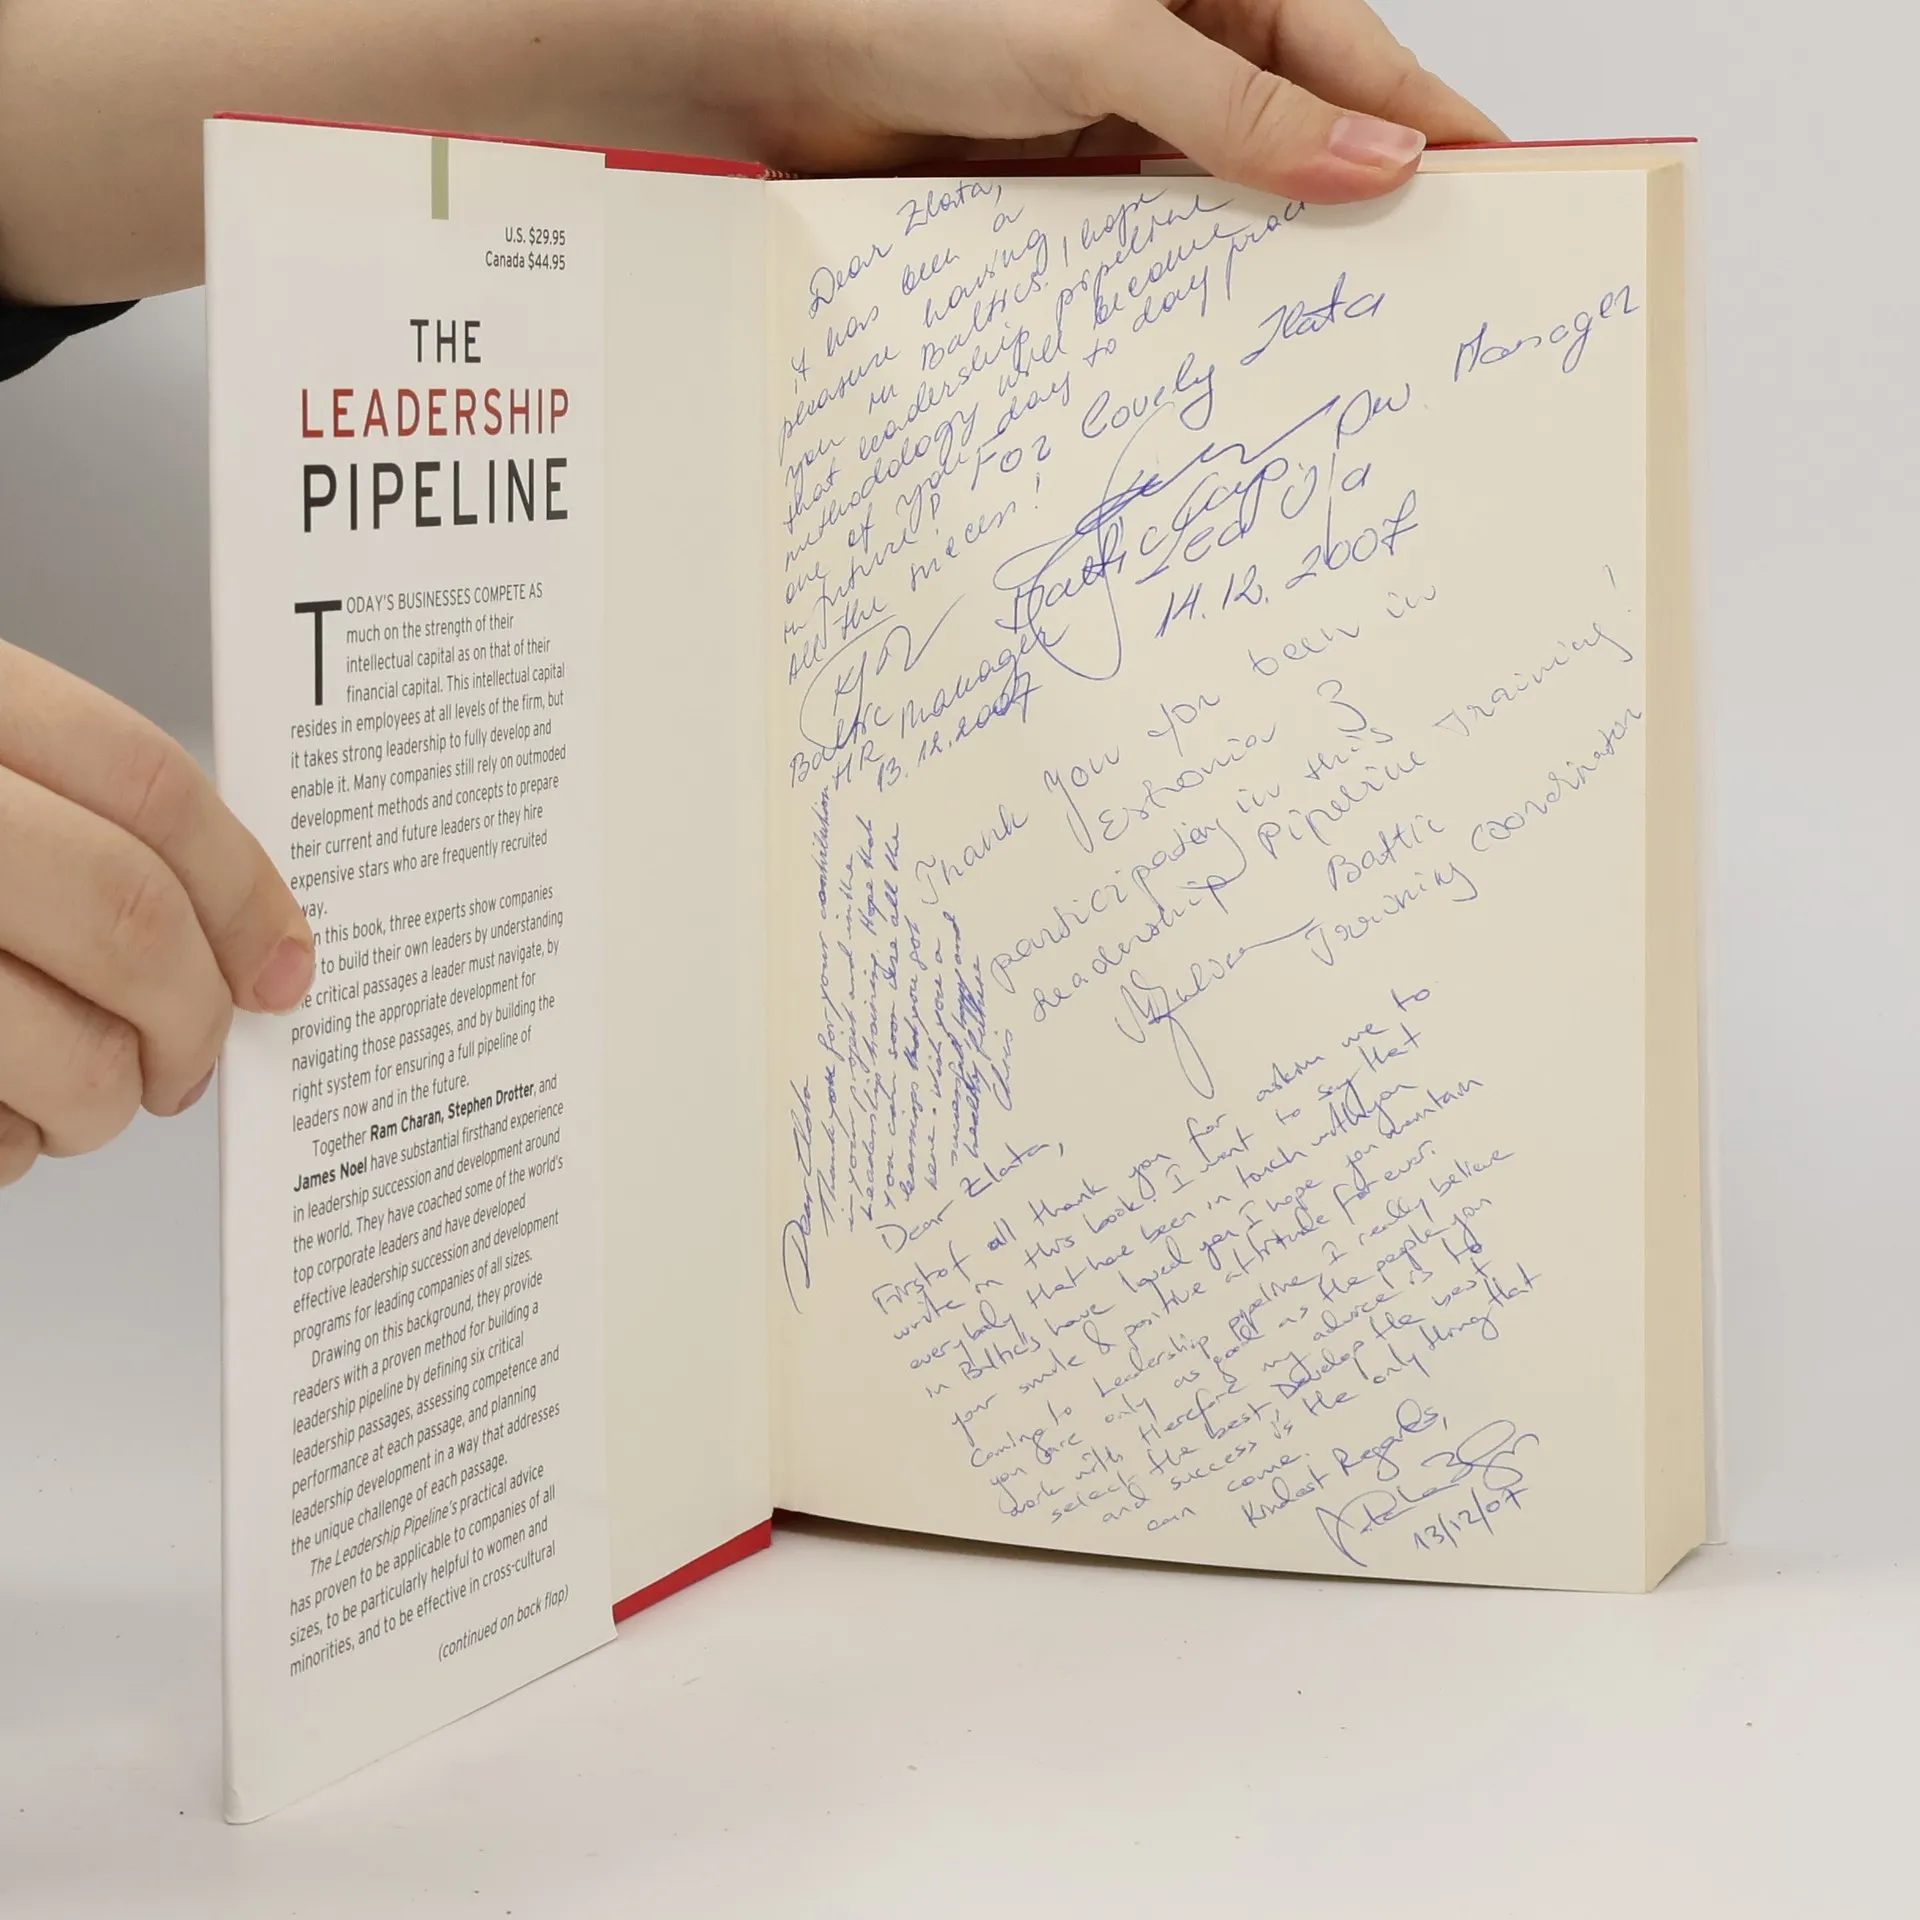 U.S. $29.95
Canada $44.95
THE
LEADERSHIP
PIPELINE
TODAY'S BUSINESSES COMPETE AS
much on the strength of their
intellectual capital as on that of their
financial capital. This intellectual capital
resides in employees at all levels of the firm, but
it takes strong leadership to fully develop and
enable it. Many companies still rely on outmoded
development methods and concepts to prepare
their current and future leaders or they hire
expensive stars who are frequently recruited
way.
n this book, three experts show companies
to build their own leaders by understanding
critical passages a leader must navigate, by
providing the appropriate development for
navigating those passages, and by building the
right system for ensuring a full pipeline of
leaders now and in the future.
Together Ram Charan, Stephen Drotter, and
James Noel have substantial firsthand experience
in leadership succession and development around
the world. They have coached some of the world's
top corporate leaders and have developed
effective leadership succession and development
programs for leading companies of all sizes.
Drawing on this background, they provide
readers with a proven method for building a
leadership pipeline by defining six critical
leadership passages, assessing competence and
performance at each passage, and planning
leadership development in a way that addresses
the unique challenge of each passage.
The Leadership Pipeline's practical advice
has proven to be applicable to companies of all
sizes, to be particularly helpful to women and
minorities, and to be effective in cross-cultural
(continued on back flap)
Dear Zlata,
it has been a
pleasure having
you in Baltics. I hope
that leadership pipeline
methodology will become
one of your day to day
in future
All the success!
Baltic
HR Manager
13.12.2007
For lovely Zlata
Manager
14.12.2007
Thank you for been in
Estonia &
participating in this
Leadership Pipeline Training!
Baltic
Training coordinator
Dear Zlata
Thank you for your contribution
in your project and in the
Leadership training. Hope that
you can soon use all the
learnings that you got
here. I wish you a
successful, happy and
healthy future
Dear Zlata,
First of all thank you for askin me to
write in this book! I want to say that
everybody that have been in touch with you
in Baltics have loved you I hope you mantain
your smile & positive attitude for ever.
Coming to Leadership pipeline I really believe
you are only as good as the people you
work with therefore my advice is to
select the best, Develop the best
and success is the only thing that
can come.
Kindest Regards,
13/12/07